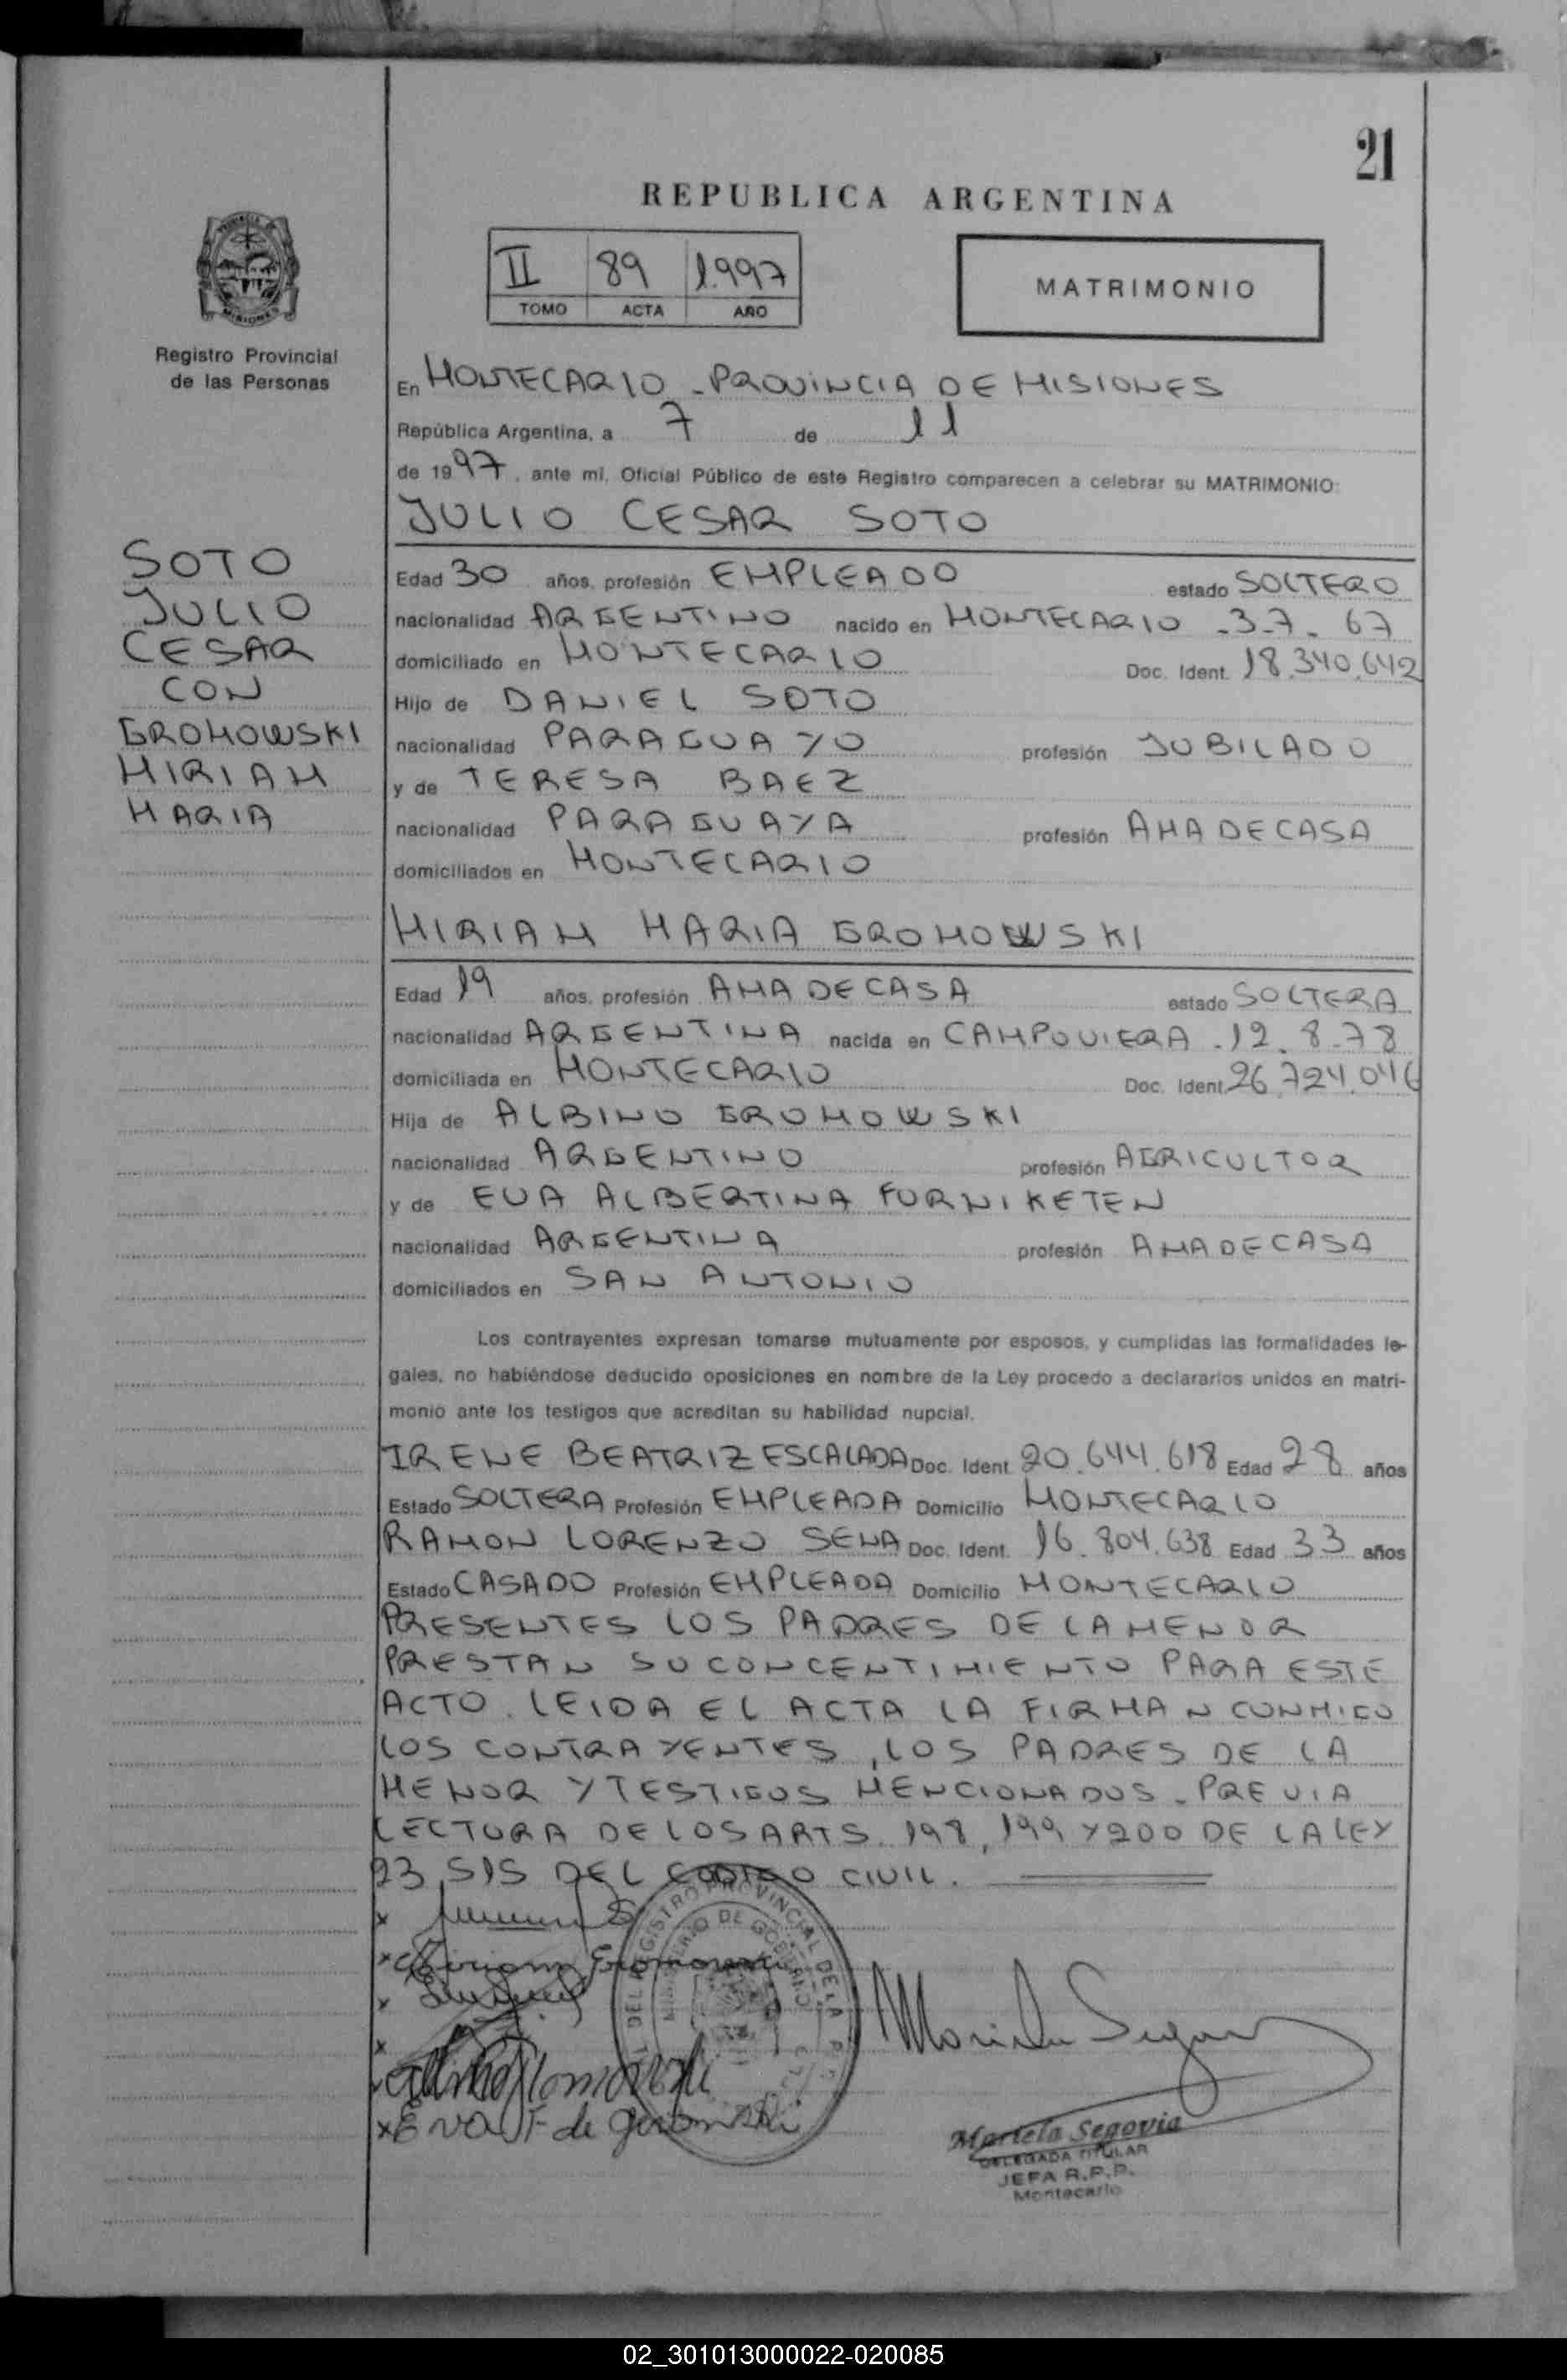 21
REPUBLICA ARGENTINA
II 89 1.997
TOMO ACTA AÑO
MATRIMONIO
Registro Provincial
de las Personas
En MONTECARLO - PROVINCIA DE MISIONES
República Argentina, a 7 de 11
de 1997, ante mí, Oficial Público de este Registro comparecen a celebrar su MATRIMONIO:
JULIO CESAR SOTO
SOTO
JULIO
CESAR
CON
GROMOWSKI
MIRIAM
MARIA
Edad 30 años, profesión EMPLEADO estado SOLTERO
nacionalidad ARGENTINO nacido en MONTECARLO - 3-7-67
domiciliado en MONTECARLO Doc. Ident. 18.340.642
Hijo de DANIEL SOTO
nacionalidad PARAGUAYO profesión JUBILADO
y de TERESA BAEZ
nacionalidad PARAGUAYA profesión AMA DE CASA
domiciliados en MONTECARLO
MIRIAM MARIA GROMOWSKI
Edad 19 años, profesión AMA DE CASA estado SOLTERA
nacionalidad ARGENTINA nacida en CAMPOVIERA - 12-8-78
domiciliada en MONTECARLO Doc. Ident. 26.724.046
Hija de ALBINO GROMOWSKI
nacionalidad ARGENTINO profesión AGRICULTOR
y de EVA ALBERTINA FURNIKETEN
nacionalidad ARGENTINA profesión AMA DE CASA
domiciliados en SAN ANTONIO
Los contrayentes expresan tomarse mutuamente por esposos, y cumplidas las formalidades le-
gales, no habiéndose deducido oposiciones en nombre de la Ley procedo a declararlos unidos en matri-
monio ante los testigos que acreditan su habilidad nupcial.
IRENE BEATRIZ ESCALADA Doc. Ident. 20.644.618 Edad 28 años
Estado SOLTERA Profesión EMPLEADA Domicilio MONTECARLO
RAMON LORENZO SENA Doc. Ident. 16.804.638 Edad 33 años
Estado CASADO Profesión EMPLEADA Domicilio MONTECARLO
PRESENTES LOS PADRES DE LA MENOR
PRESTAN SU CONCENTIMIENTO PARA ESTE
ACTO. LEIDA EL ACTA LA FIRMAN CONMIGO
LOS CONTRAYENTES, LOS PADRES DE LA
MENOR Y TESTIGOS MENCIONADOS - PREVIA
LECTURA DE LOS ARTS. 198, 199 Y 200 DE LA LEY
23.515 DEL CODIGO CIVIL.
DEL REGISTRO PROVINCIAL DE LA
MINISTERIO DE GOBIERNO
x Eva F de Gromowski
Mariela Segovia
Mariela Segovia
DELEGADA TITULAR
JEFA R.P.P.
Montecarlo
02_301013000022-020085